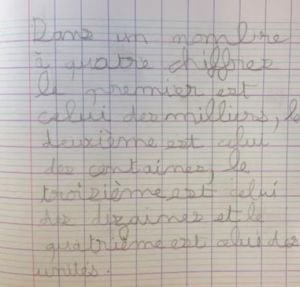 Dans un nombre
à quatre chiffres
le premier est
celui des milliers, le
deuxième est celui
des centaines, le
troisième est celui
des dizaines et le
quatrième est celui des
unités.